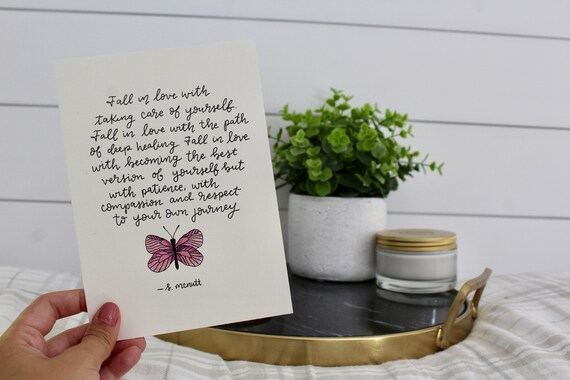 Fall in love with
taking care of yourself
Fall in love with the path
of deep healing. Fall in love
with becoming the best
version of yourself but
with patience, with
compassion and respect
to your own journey
- s. mcnutt